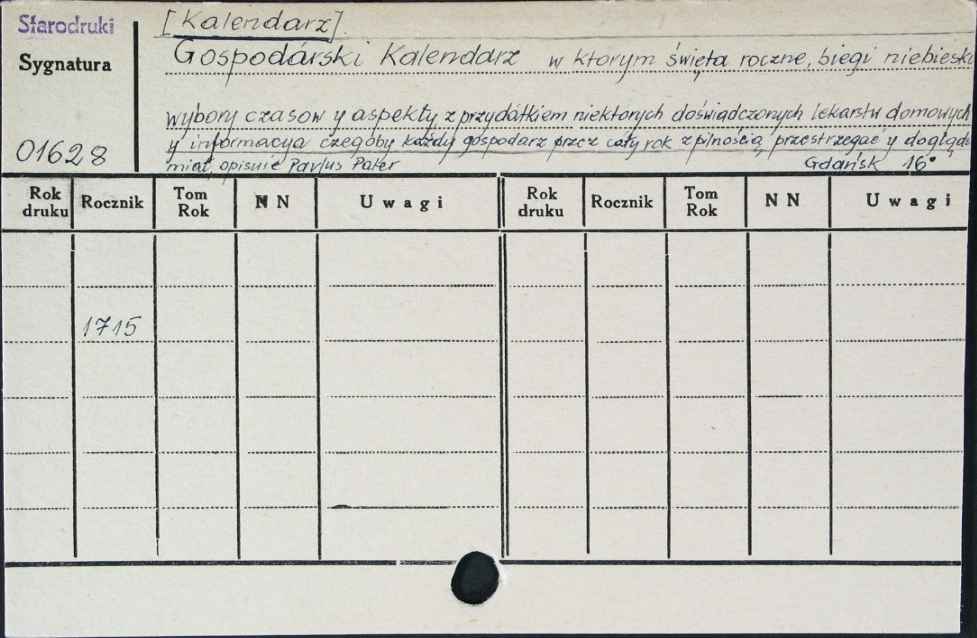 Starodruki
Sygnatura
01628
[Kalendarz]
Gospodárski Kalendarz w ktorym święta roczne, biegi niebieski
wybory czasow y aspekty z przydatkiem niektorych doświádczonych lekarstw domowych
y informacya czegoby każdy gospodarz przez cały rok z pilnością przestrzegać y doglądá
miał, opisuie Pavlus Pater Gdańsk 16°
Rok druku Rocznik Tom Rok NN Uwagi Rok druku Rocznik Tom Rok NN Uwagi
1715